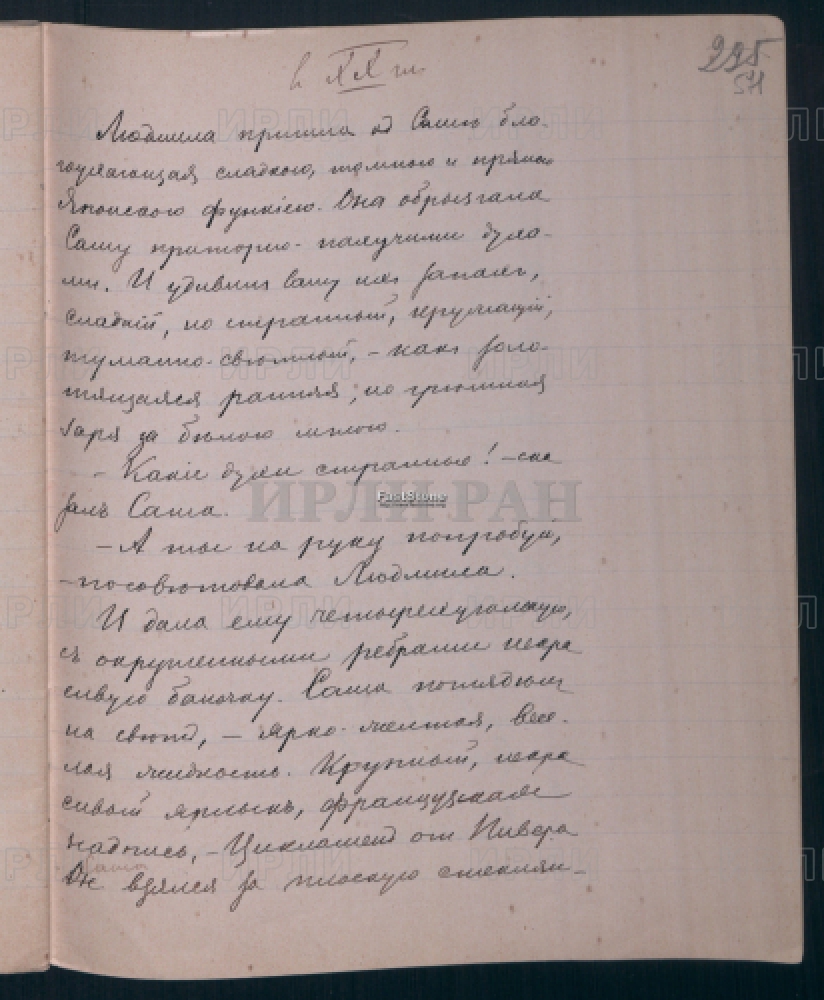 в XX гл.
295
571
Людмила пришла къ Сашѣ бла-
гоухающая сладкою, томною и пряною
Японскою функіею. Она обрызгала
Сашу приторно-пахучими духа-
ми. И удивилъ Сашу ихъ запахъ,
сладкій, но странный, кружащій,
туманно-свѣтлый, – какъ золо-
тящаяся ранняя, но грѣшная
заря за бѣлою мглою.
– Какіе духи странные! – ска
залъ Саша.
– А ты на руку попробуй,
– посовѣтовала Людмила.
И дала ему четыреугольную,
съ округленными ребрами некра
сивую баночку. Саша поглядѣлъ
на свѣтъ, – ярко-желтая, весе-
лая жидкость. Крупный, некра
сивый ярлыкъ, французская
надпись, – Цикламенъ отъ Пивера
Саша
Он взялся за плоскую стеклян-
ИРЛИ РАН
FastStone